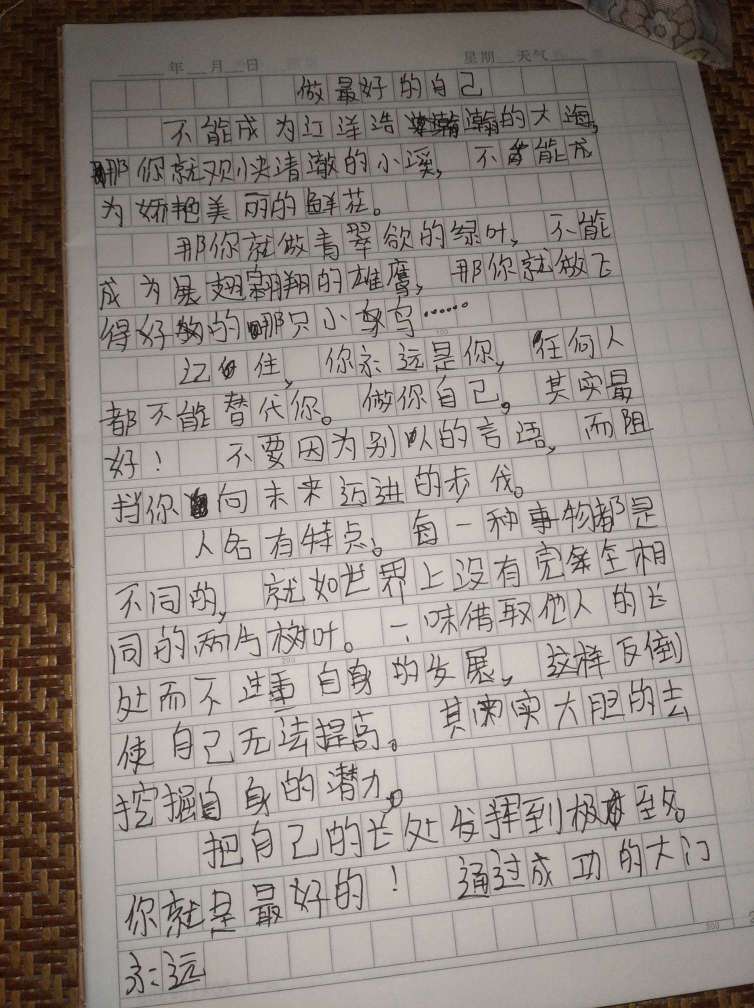 年 月 日 星期 天气
做最好的自己
不能成为江洋浩瀚的大海,
那你就观小清澈的小溪, 不能成
为娇艳美丽的鲜花。
那你就做青翠欲的绿叶, 不能
成为展翅翱翔的雄鹰, 那你就做飞
得好的那只小鸟……
记住, 你永远是你, 任何人
都不能替代你。做你自己, 其实最
好! 不要因为别人的言语, 而阻
挡你向未来迈进的步伐。
人各有特点。每一种事物都是
不同的, 就如世界上没有完全相
同的两片树叶。一味借取他人的长
处而不注重自身的发展, 这样反倒
使自己无法提高。其实大胆的去
挖掘自身的潜力。
把自己的长处发挥到极至。
你就是最好的! 通过成功的大门
永远